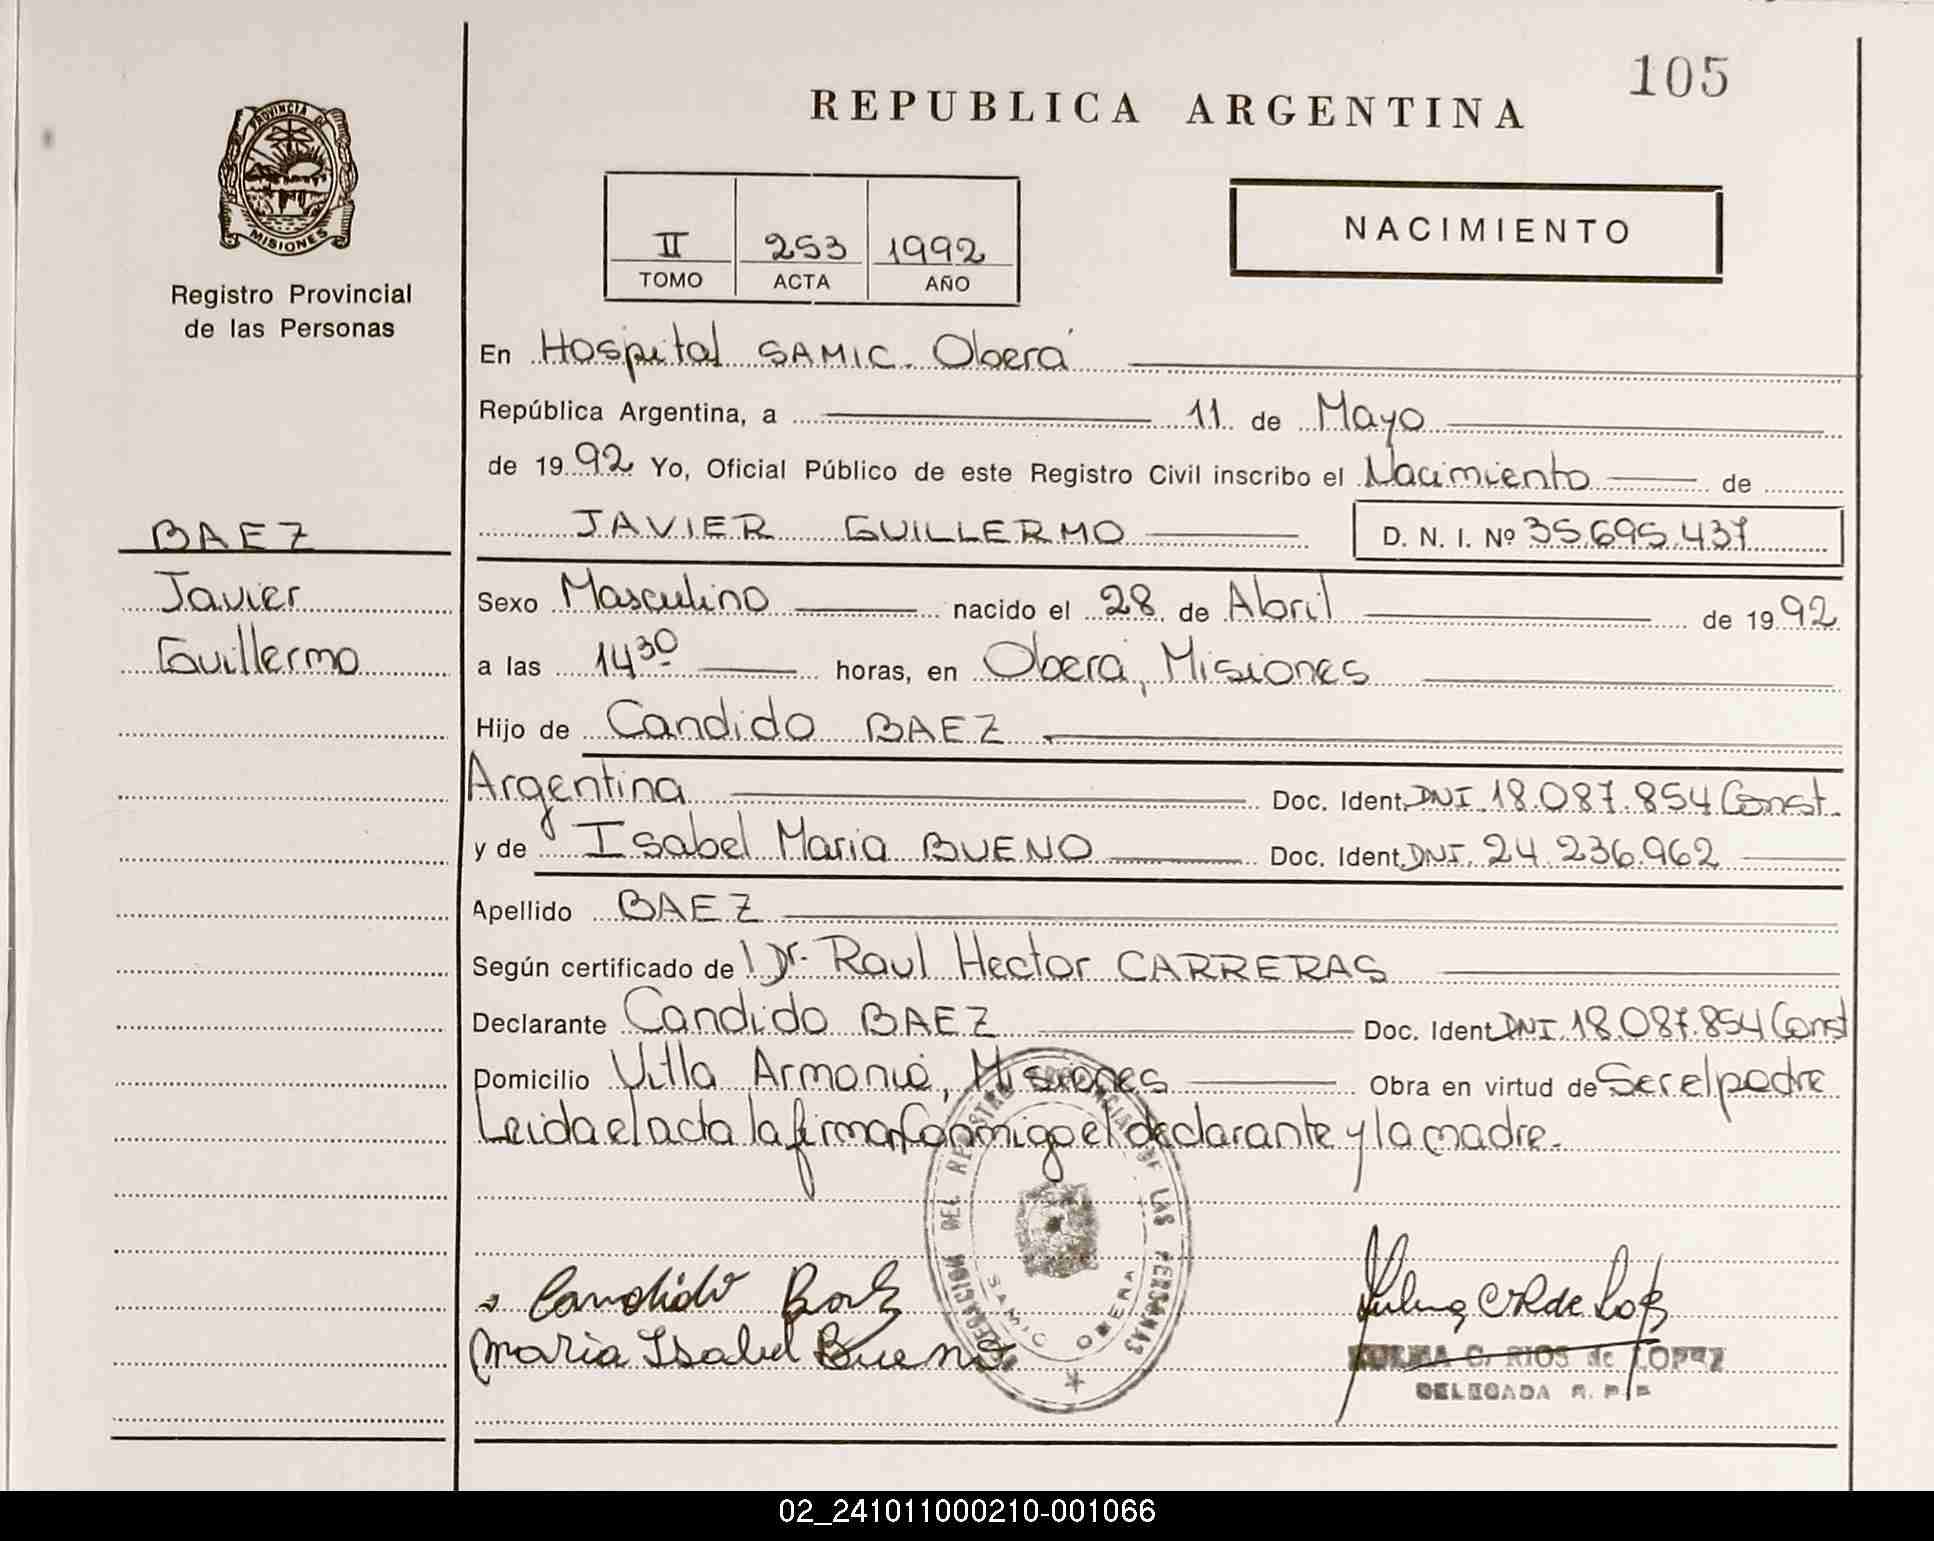 105
REPUBLICA ARGENTINA
PROVINCIA DE
MISIONES
Registro Provincial
de las Personas
II 253 1992
TOMO ACTA AÑO
NACIMIENTO
En Hospital SAMIC. Oberá
República Argentina, a 11 de Mayo
de 1992 Yo, Oficial Público de este Registro Civil inscribo el Nacimiento de
JAVIER GUILLERMO D. N. I. Nº 35.695.437
BAEZ
Javier
Guillermo
Sexo Masculino nacido el 28 de Abril de 1992
a las 14 30 horas, en Oberá, Misiones
Hijo de Candido BAEZ
Argentina Doc. Ident. DNI. 18.087.854 Const.
y de Isabel Maria BUENO Doc. Ident. DNI. 24.236.962
Apellido BAEZ
Según certificado de Dr. Raul Hector CARRERAS
Declarante Candido BAEZ Doc. Ident DNI. 18.087.854 Const
Domicilio Villa Armonia, Misiones Obra en virtud de Ser el padre
Leida el acta la firman Conmigo el declarante y la madre.
DELEGACION DEL REGISTRO PROVINCIAL DE LAS PERSONAS
SAMIC OBERA
Candido Baez
Maria Isabel Bueno
ZULMA C. RIOS de LOPEZ
DELEGADA R. P. P.
02_241011000210-001066